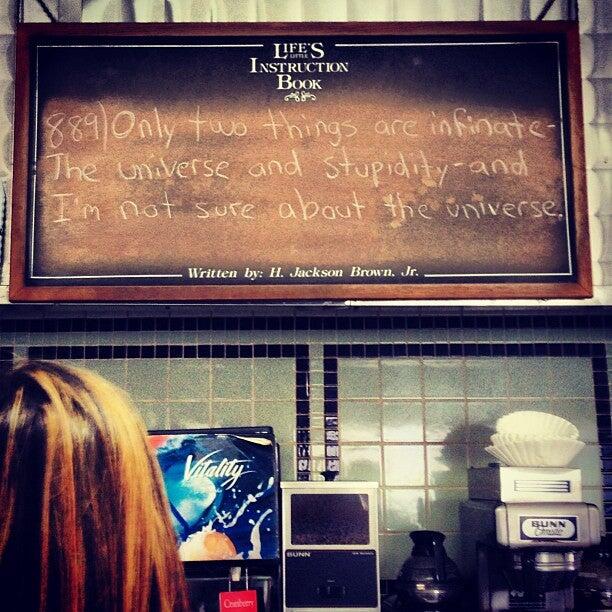 LIFE'S
LITTLE
INSTRUCTION
BOOK
889) Only two things are infinate-
The universe and stupidity-and
I'm not sure about the universe.
Written by: H. Jackson Brown, Jr.
Vitality
BUNN
BUNN
Cranberry